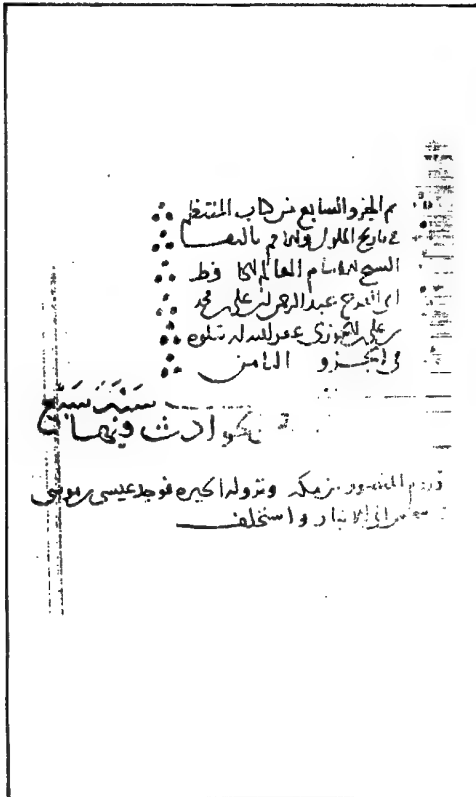 تم الجزو السابع من كتاب المنتظم
في تاريخ الملوك والامم تاليف
الشيخ الامام العالم الحافظ
ابي الفرج عبد الرحمن بن علي بن محمد
بن علي الجوزي عفر الله له يتلوه
في الجزو الثامن
سنة سبع
الحوادث فيها
قدوم المنصور من مكة ونزوله الحيرة فوجد عيسى بن موسى
الى الانبار واستخلف